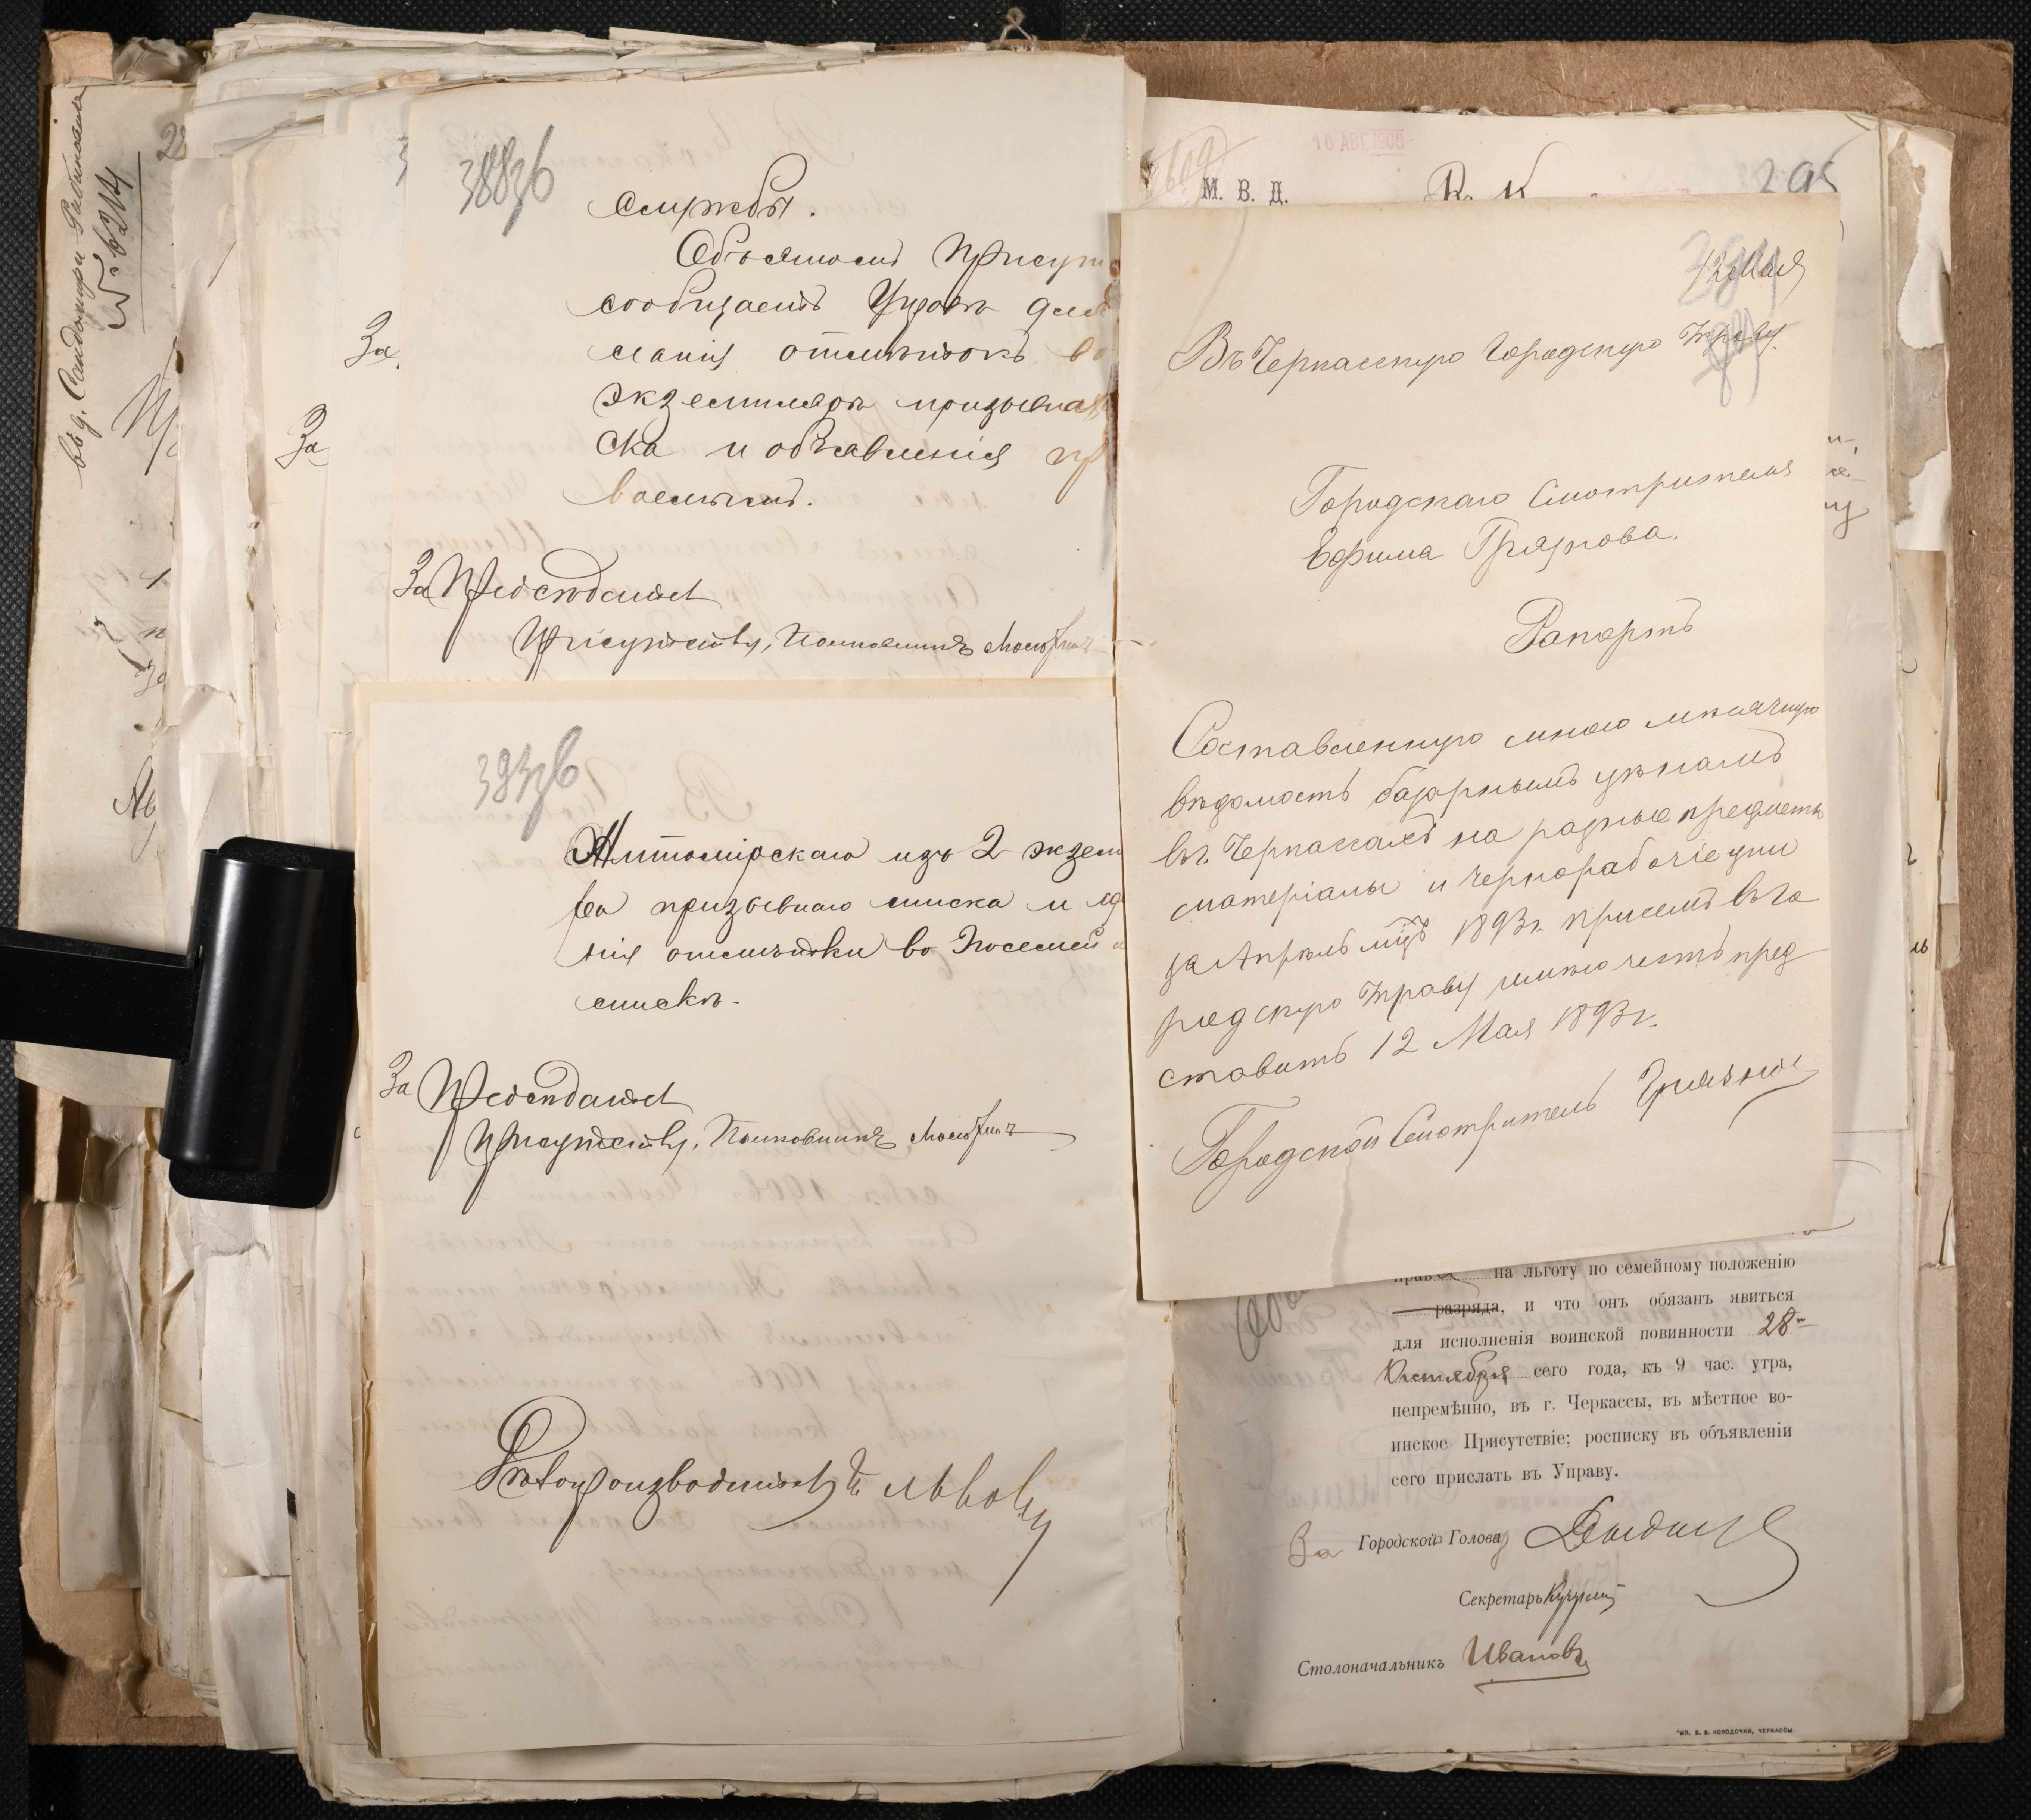 въ д. Сандомири-Работникъ
№ 6214
За
За
388зв
службы.
Объ этомъ Присут
сообщаетъ Управѣ для
ланія отмѣтокъ во
экземплярѣ призывна
ска и объявленія пр
ваемымъ.
За Предсѣдателя
Присутствія, Полковникъ
393зв
Житомірскаго изъ 2 экзем
ра призывнаго списка и
нія отмѣтки во посемей
спискѣ.
За Предсѣдателя
Присутствія, Полковникъ
Дѣлопроизводитель
16 АВГ. 1906
М. В. Д.
295
12 Мая
Въ Черкасскую Городскую Управу.
Городскаго Смотрителя
Ефима Грязнова.
Рапортъ
Составленную мною мѣсячную
вѣдомость базарнымъ цѣнамъ
въ г. Черкассахъ на разные предметы
матеріалы и чернорабочіе дни
за Апрѣль мцъ 1893 г. при семъ въ Го
родскую Управу имѣю честь пред
ставить 12 Мая 1893 г.
Городской Смотритель Грязновъ
на льготу по семейному положенію
разряда, и что онъ обязанъ явиться
для исполненія воинской повинности 28-
Октября сего года, къ 9 час. утра,
непремѣнно, въ г. Черкассы, въ мѣстное во-
инское Присутствіе; росписку въ объявленіи
сего прислать въ Управу.
За Городской Голова
Секретарь
Столоначальникъ Ивановъ
ТИП. В. В. КОЛОДОЧКИ, ЧЕРКАССЫ.